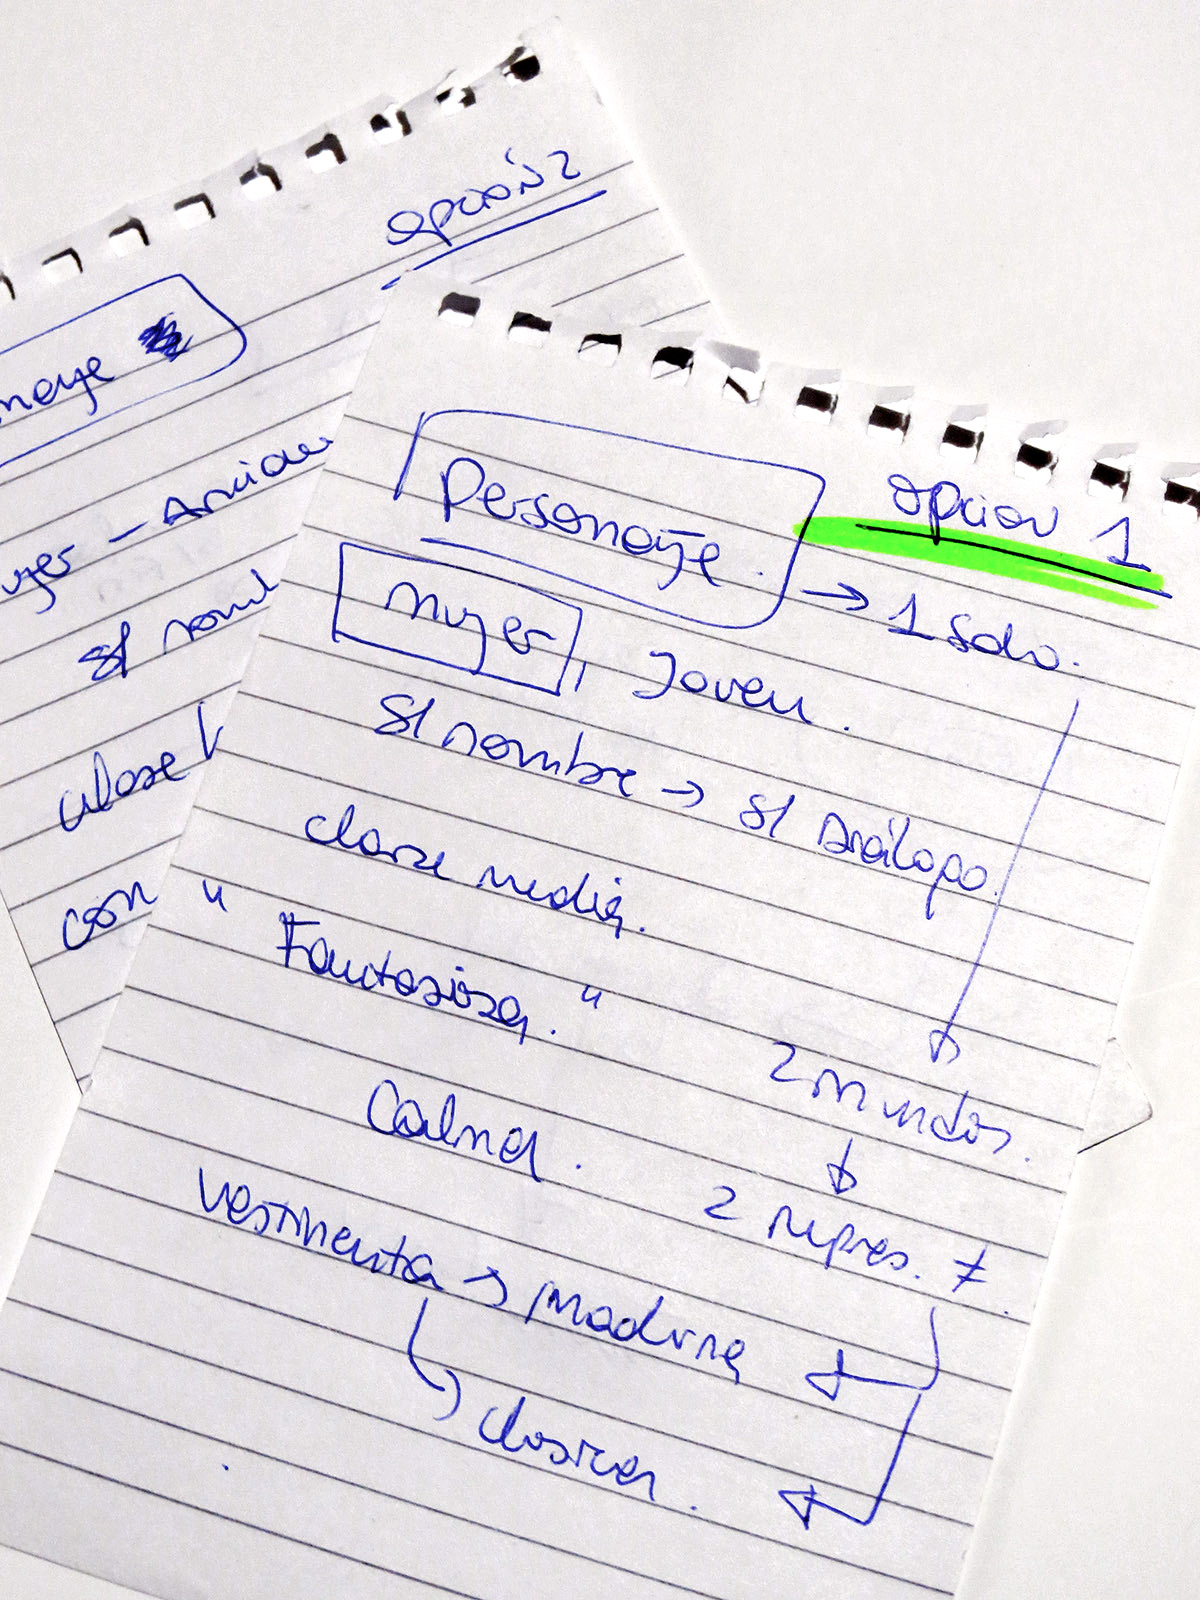 opción 2
naje
ujer – Ancian
s/ nomb
clase
con
opcion 1
Personaje. → 1 solo.
Mujer, Joven.
S/ nombre → S/ Diálogo.
clase media.
"Fantasiosa."
2 mundos.
Calma.
2 repres. ≠.
Vestimenta → moderna
clasica.